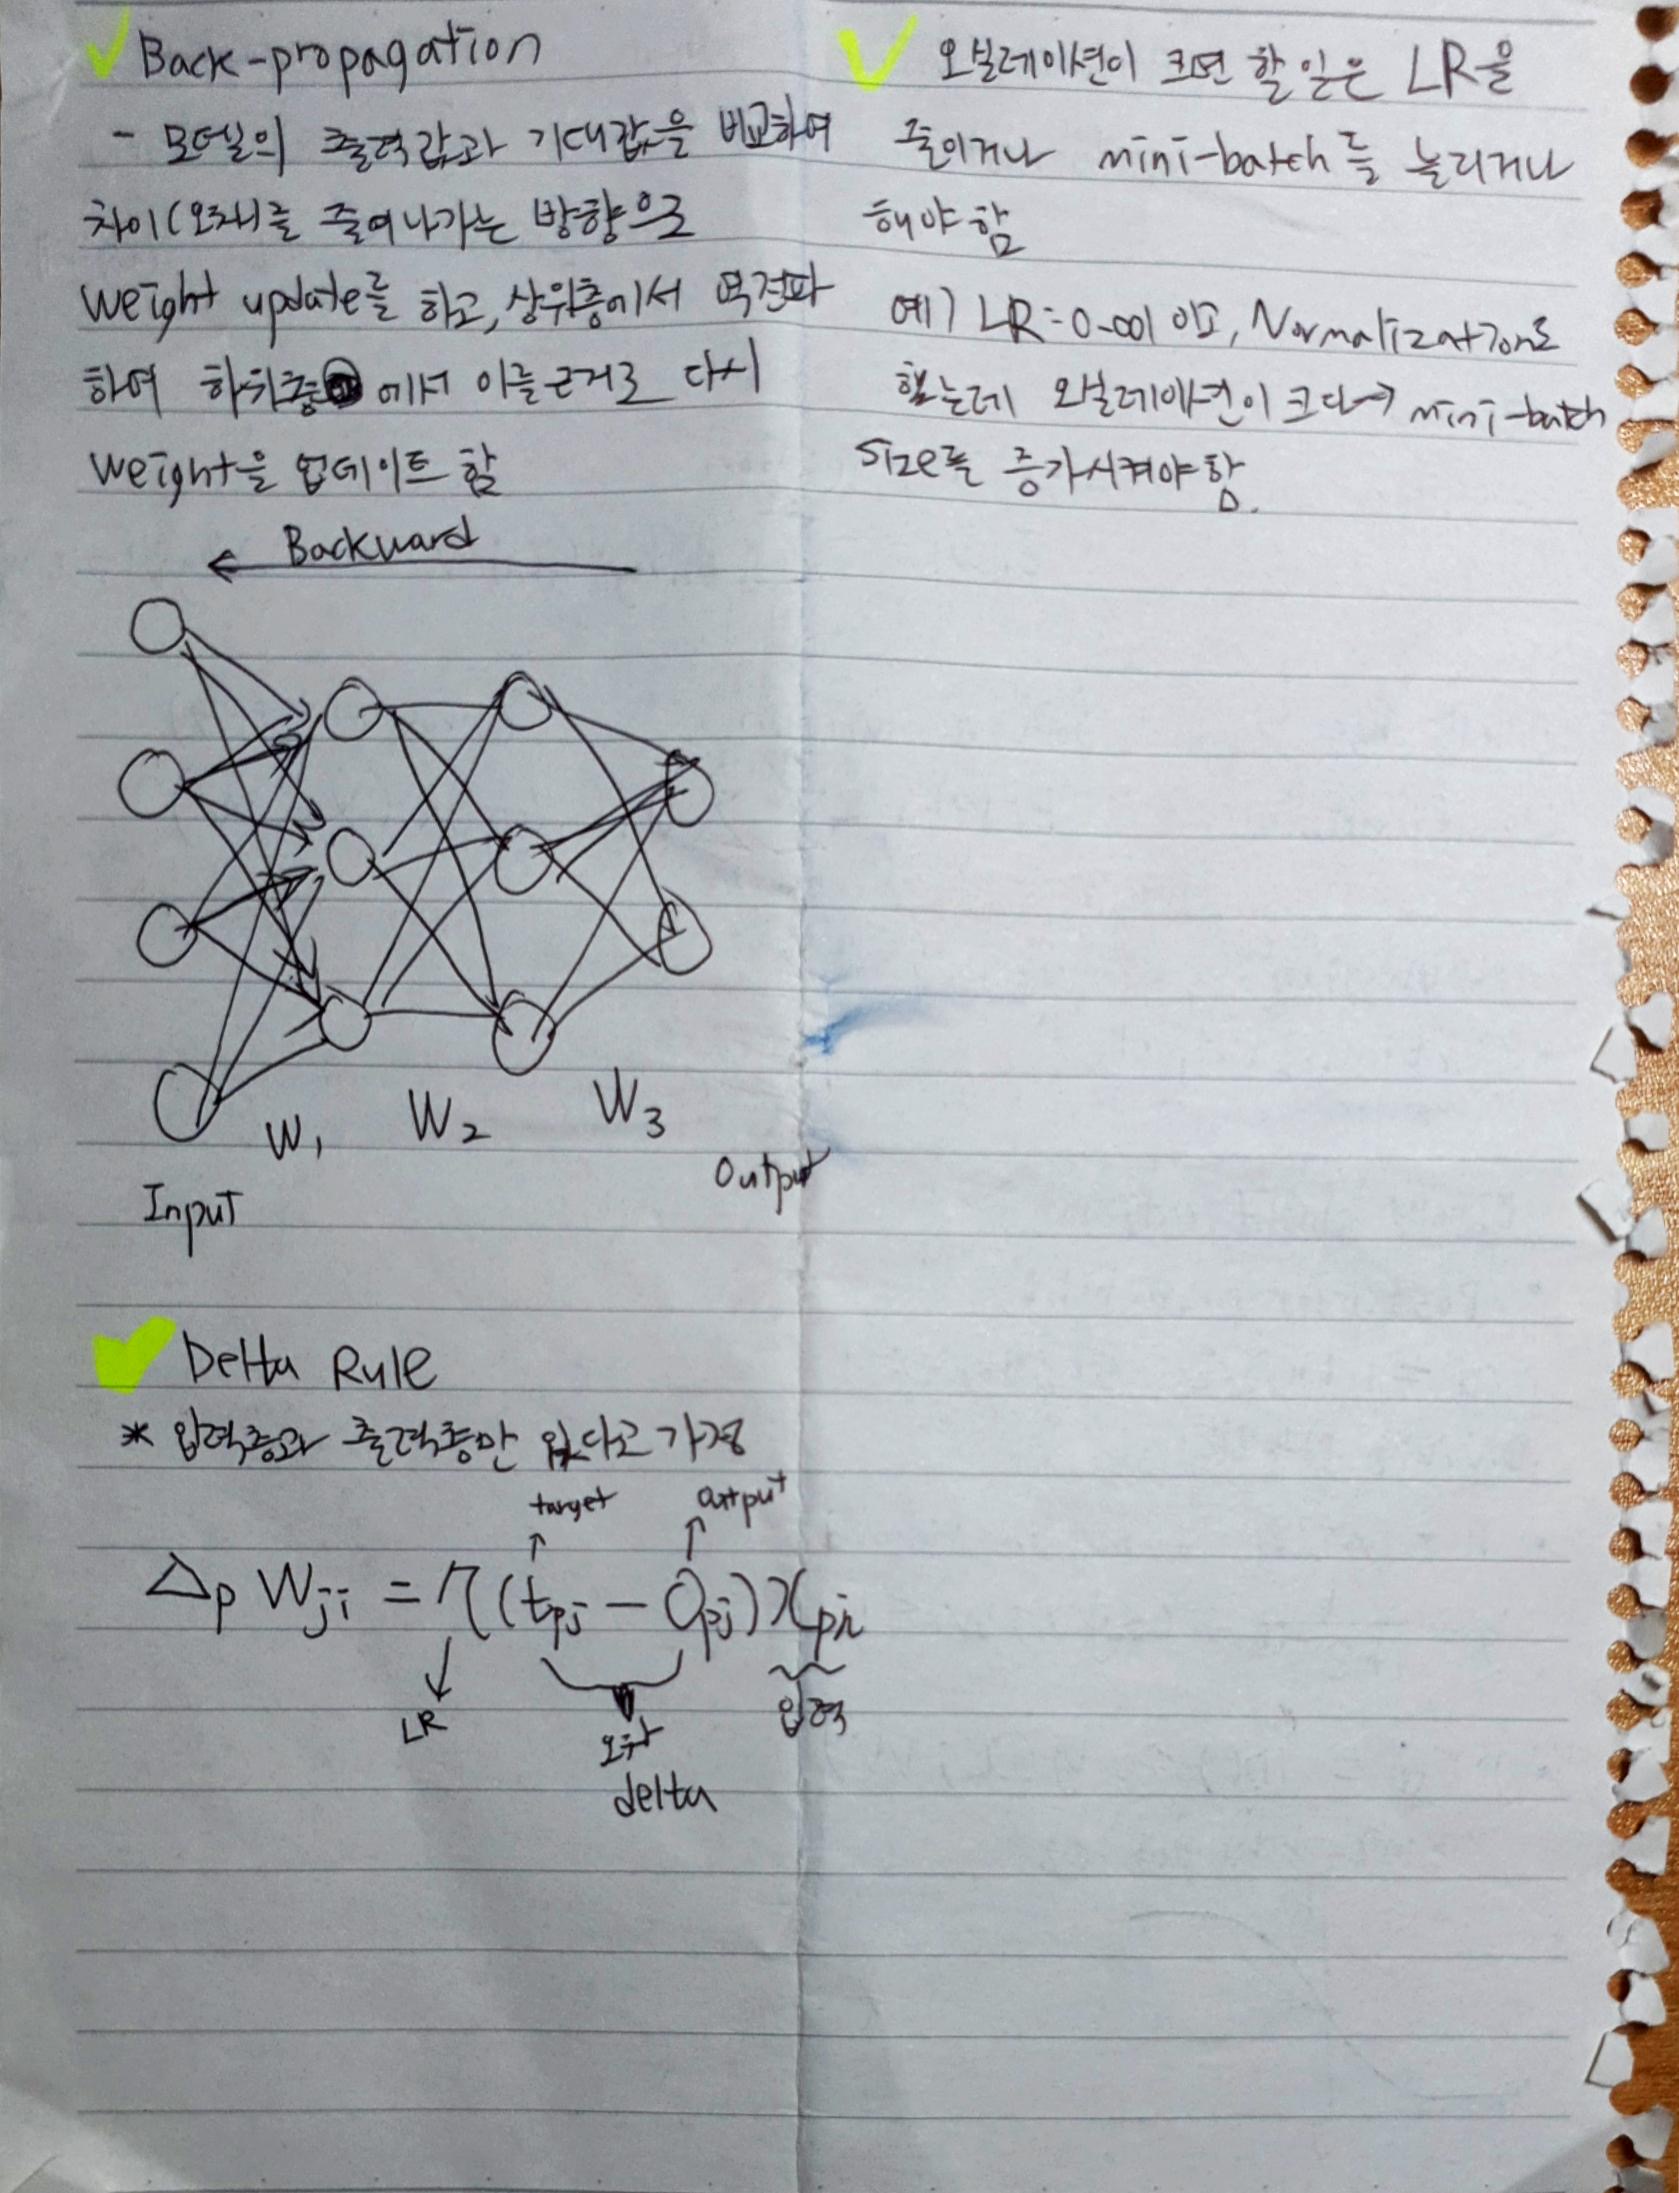 Back-propagation
- 모델의 출력값과 기대값을 비교하여
차이(오차)를 줄여나가는 방향으로
weight update를 하고, 상위층에서 역전파
하여 하위층 에서 이를 근거로 다시
weight을 업데이트 함
Backward
W₁ W₂ W₃
Output
Input
Delta Rule
* 입력층과 출력층만 있다고 가정
target output
Δp Wji = η(tpj - Opj)xpi
LR 오차 입력
delta
오실레이션이 크면 할 일은 LR을
줄이거나 mini-batch를 늘리거나
해야 함
예) LR=0.001 이고, Normalization도
했는데 오실레이션이 크다→ mini-batch
size를 증가시켜야 함.